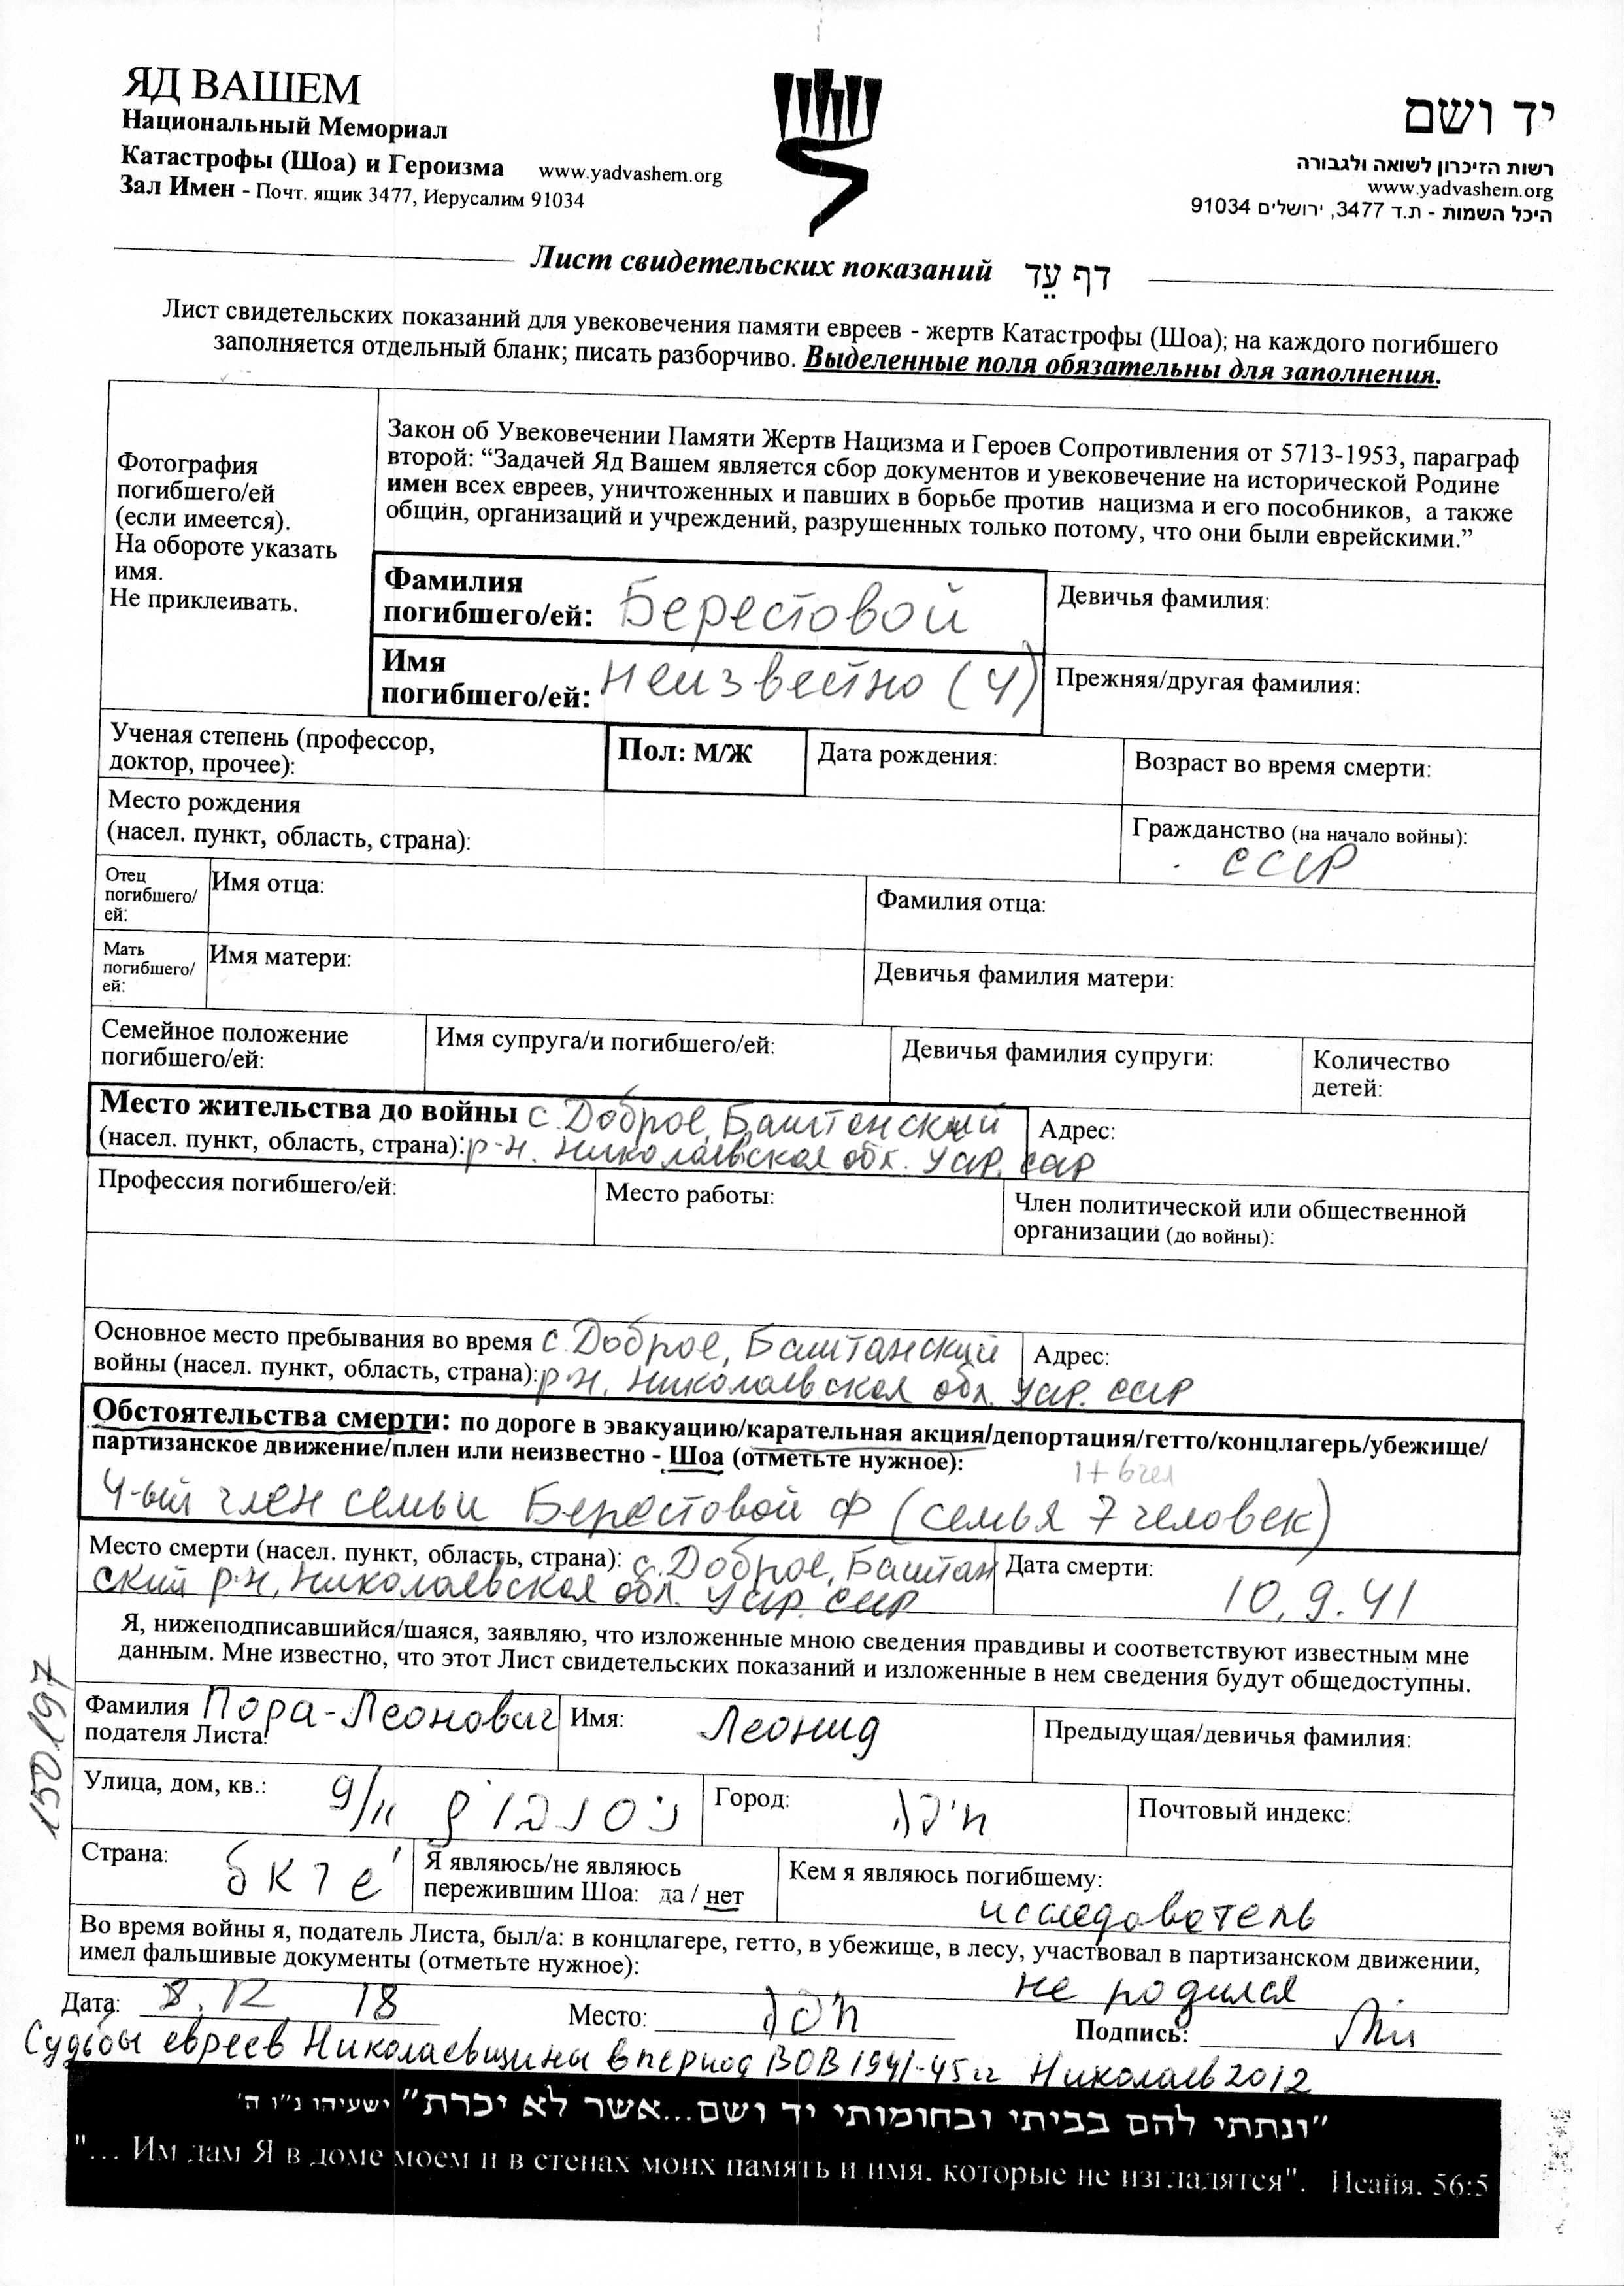 ЯД ВАШЕМ
Национальный Мемориал
Катастрофы (Шоа) и Героизма www.yadvashem.org
Зал Имен - Почт. ящик 3477, Иерусалим 91034
יד ושם
רשות הזיכרון לשואה ולגבורה
www.yadvashem.org
היכל השמות - ת.ד 3477, ירושלים 91034
Лист свидетельских показаний דף עֵד
Лист свидетельских показаний для увековечения памяти евреев - жертв Катастрофы (Шоа); на каждого погибшего
заполняется отдельный бланк; писать разборчиво. Выделенные поля обязательны для заполнения.
Фотография
погибшего/ей
(если имеется).
На обороте указать
имя.
Не приклеивать.
Закон об Увековечении Памяти Жертв Нацизма и Героев Сопротивления от 5713-1953, параграф
второй: “Задачей Яд Вашем является сбор документов и увековечение на исторической Родине
имен всех евреев, уничтоженных и павших в борьбе против нацизма и его пособников, а также
общин, организаций и учреждений, разрушенных только потому, что они были еврейскими.”
Фамилия
погибшего/ей: Берестовой
Девичья фамилия:
Имя
погибшего/ей: неизвестно (4)
Прежняя/другая фамилия:
Ученая степень (профессор,
доктор, прочее):
Пол: М/Ж
Дата рождения:
Возраст во время смерти:
Место рождения
(насел. пункт, область, страна):
Гражданство (на начало войны):
СССР
Отец
погибшего/
ей:
Имя отца:
Фамилия отца:
Мать
погибшего/
ей:
Имя матери:
Девичья фамилия матери:
Семейное положение
погибшего/ей:
Имя супруга/и погибшего/ей:
Девичья фамилия супруги:
Количество
детей:
Место жительства до войны с. Доброе, Баштанский
(насел. пункт, область, страна): р-н. Николаевская обл. УССР. СССР
Адрес:
Профессия погибшего/ей:
Место работы:
Член политической или общественной
организации (до войны):
Основное место пребывания во время с. Доброе, Баштанский
войны (насел. пункт, область, страна): р-н. Николаевская обл. УССР. СССР
Адрес:
Обстоятельства смерти: по дороге в эвакуацию/карательная акция/депортация/гетто/концлагерь/убежище/
партизанское движение/плен или неизвестно - Шоа (отметьте нужное):
1+6чел
4-ый член семьи Берестовой Ф (семья 7 человек)
Место смерти (насел. пункт, область, страна): с. Доброе, Баштан
ский р-н, Николаевская обл. УССР. СССР
Дата смерти:
10.9.41
Я, нижеподписавшийся/шаяся, заявляю, что изложенные мною сведения правдивы и соответствуют известным мне
данным. Мне известно, что этот Лист свидетельских показаний и изложенные в нем сведения будут общедоступны.
150197
Фамилия Пора-Леонович
подателя Листа:
Имя: Леонид
Предыдущая/девичья фамилия:
Улица, дом, кв.: 9/11
Город: חיפה
Почтовый индекс:
Страна:
Я являюсь/не являюсь
пережившим Шоа: да / нет
Кем я являюсь погибшему:
исследователь
Во время войны я, податель Листа, был/а: в концлагере, гетто, в убежище, в лесу, участвовал в партизанском движении,
имел фальшивые документы (отметьте нужное):
не родился
Дата: 8.12 18
Место: חיפה
Подпись:
Судьбы евреев Николаевщины в период ВОВ 1941-45 гг Николаев 2012
"ונתתי להם בביתי ובחומותי יד ושם...אשר לא יכרת" ישעיהו נ"ו ה'
"... Им дам Я в доме моем и в стенах моих память и имя, которые не изгладятся". Исайя. 56:5